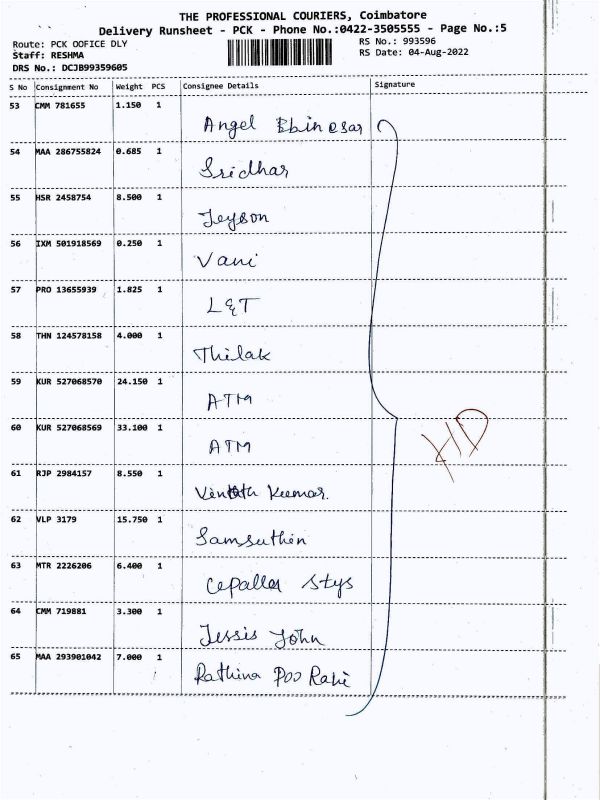 THE PROFESSIONAL COURIERS, Coimbatore
Delivery Runsheet - PCK - Phone No.:0422-3505555 - Page No.:5
Route: PCK OOFICE DLY
RS No.: 993596
Staff: RESHMA
RS Date: 04-Aug-2022
DRS No.: DCJB99359605
S No Consignment No Weight PCS Consignee Details Signature
53 CMM 781655 1.150 1 Angel Ebinesar
54 MAA 286755824 0.685 1 Sridhar
55 HSR 2458754 8.500 1 Jeyson
56 IXM 501918569 0.250 1 Vani
57 PRO 13655939 1.825 1 L&T
58 THN 124578158 4.000 1 Thilak
59 KUR 527068570 24.150 1 ATM
60 KUR 527068569 33.100 1 ATM
61 RJP 2984157 8.550 1 Kumar.
62 VLP 3179 15.750 1 Samsuthin
63 MTR 2226206 6.400 1 Stys
64 CMM 719881 3.300 1 Jessis John
65 MAA 293901042 7.000 1 Rathina Poo